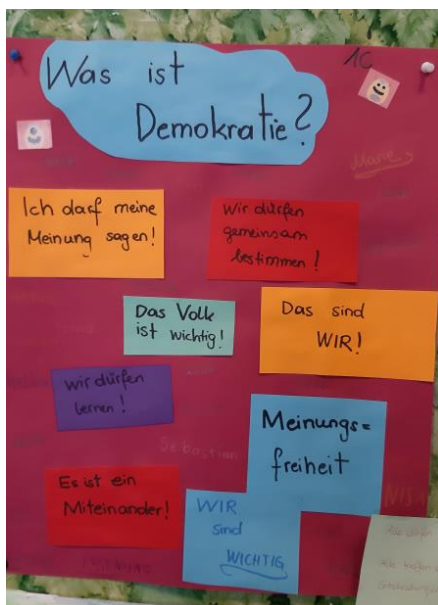 Was ist
Demokratie?
1C
Marie
Ich darf meine
Meinung sagen!
Wir dürfen
gemeinsam
bestimmen!
Das Volk
ist wichtig!
Das sind
WIR!
wir dürfen
lernen!
Meinungs=
freiheit
Sebastian
Es ist ein
Miteinander!
WIR
sind
WICHTIG